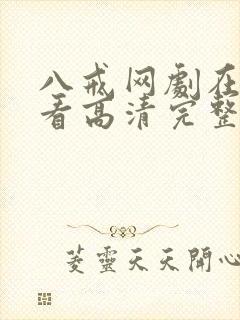 八戒网劇在
看高清完整
菱靈天天開心